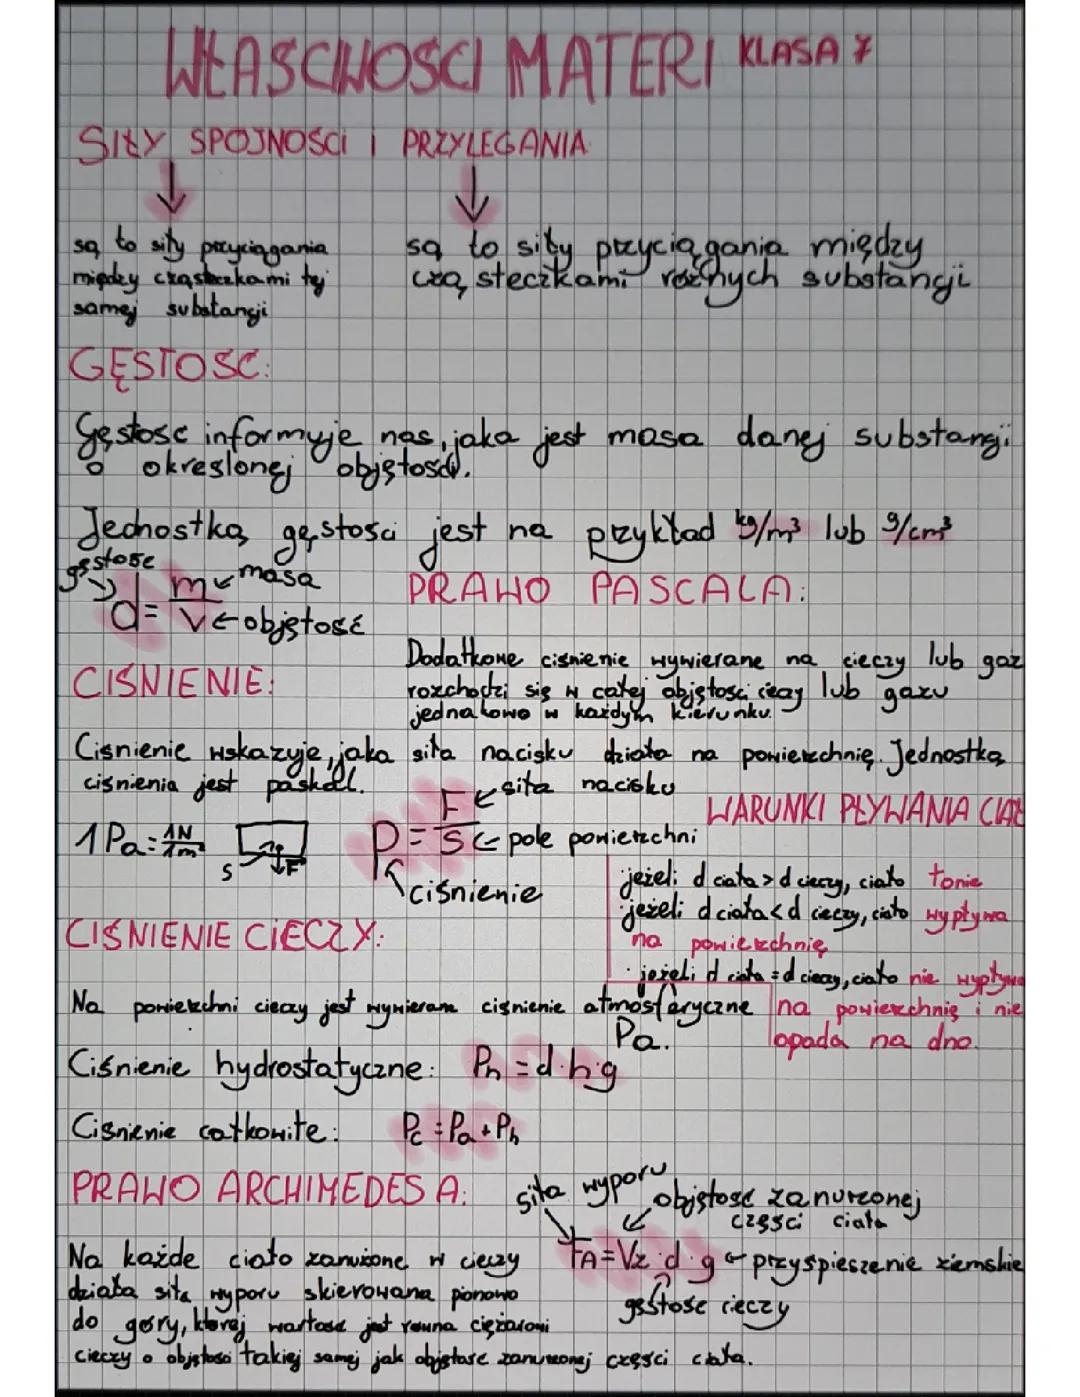 WŁASCIWOSCI MATERI KLASA 7
SIŁY SPOJNOŚCI I PRZYLEGANIA
są to siły przyciągania
między cząsteczkami tej
samej substancji
są to siły przyciągania między
cząsteczkami roznych substancji
GĘSTOSC:
Gęstosc informuje nas, jaka jest masa danej substancji
o okreslonej objętosci.
Jednostką gęstosci jest na przykład kg/m³ lub g/cm³
gęstosc
d = m/V
masa
objętość
PRAWO PASCALA:
Dodatkowe cisnienie wywierane na cieczy lub gaz
rozchodzi się w całej objętosci cieczy lub gazu
jednakowo w każdym kierunku.
CIŚNIENIE:
Cisnienie wskazuje, jaka siła nacisku działa na powierzchnię. Jednostką
cisnienia jest paskal.
1 Pa = 1N/1m²
S
F
p = F/S
siła nacisku
pole powierzchni
ciśnienie
WARUNKI PŁYWANIA CIAŁ
jeżeli d ciała > d cieczy, ciało tonie
jeżeli d ciała < d cieczy, ciało wypływa
na powierzchnię
· jeżeli d ciała = d cieczy, ciało nie wypływa
na powierzchnię i nie
opada na dno.
CIŚNIENIE CIECZY:
Na powierzchni cieczy jest wywierane cisnienie atmosferyczne
Pa.
Ciśnienie hydrostatyczne: Ph = d·h·g
Cisnienie całkowite: Pc = Pa + Ph
PRAWO ARCHIMEDESA:
siła wyporu
objętosc zanurzonej
częsci ciała
FA = Vz·d·g
przyspieszenie ziemskie
gęstosc cieczy
Na każde ciało zanurzone w cieczy
działa siła wyporu skierowana pionowo
do gory, ktorej wartosc jest rowna ciężarowi
cieczy o objętosci takiej samej jak objętosc zanurzonej częsci ciała.